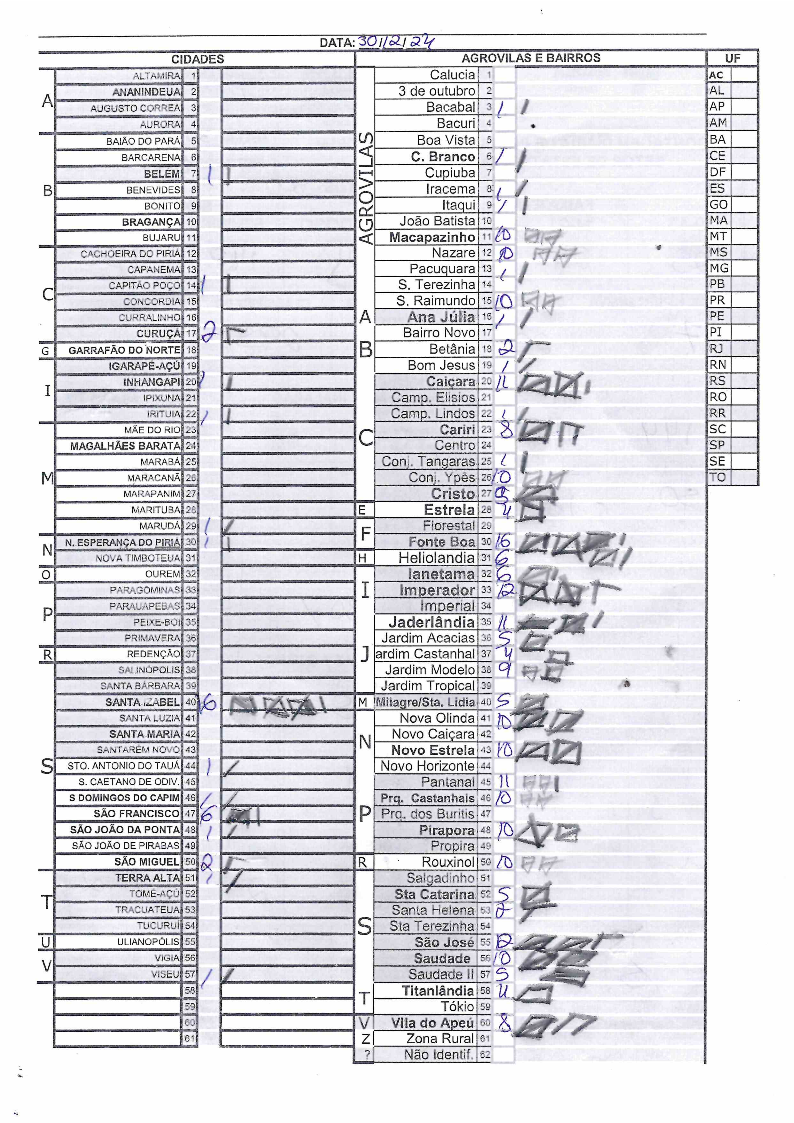 DATA: 30/12/24
CIDADES
A
ALTAMIRA 1
ANANINDEUA 2
AUGUSTO CORREA 3
AURORA 4
B
BAIÃO DO PARÁ 5
BARCARENA 6
BELÉM 7 1
BENEVIDES 8
BONITO 9
BRAGANÇA 10
BUJARU 11
C
CACHOEIRA DO PIRIA 12
CAPANEMA 13
CAPITÃO POÇO 14 1
CONCORDIA 15
CURRALINHO 16
CURUÇÁ 17 2
G GARRAFÃO DO NORTE 18
I
IGARAPÉ-AÇÚ 19
INHANGAPI 20 1
IPIXUNA 21
IRITUIA 22 1
M
MÃE DO RIO 23
MAGALHÃES BARATA 24
MARABÁ 25
MARACANÃ 26
MARAPANIM 27
MARITUBA 28
MARUDÁ 29 1
N
N. ESPERANÇA DO PIRIA 30 1
NOVA TIMBOTEUA 31
O OUREM 32
P
PARAGOMINAS 33
PARAUAPEBAS 34
PEIXE-BOI 35
PRIMAVERA 36
R REDENÇÃO 37
S
SALINÓPOLIS 38
SANTA BÁRBARA 39
SANTA IZABEL 40 16
SANTA LUZIA 41
SANTA MARIA 42
SANTARÉM NOVO 43
STO. ANTONIO DO TAUÁ 44 1
S. CAETANO DE ODIV. 45
S DOMINGOS DO CAPIM 46 1
SÃO FRANCISCO 47 6
SÃO JOÃO DA PONTA 48 1
SÃO JOÃO DE PIRABAS 49
SÃO MIGUEL 50 2
T
TERRA ALTA 51 1
TOMÉ-AÇÚ 52
TRACUATEUA 53
TUCURUI 54
U ULIANOPÓLIS 55
V
VIGIA 56
VISEU 57 1
58
59
60
61
AGROVILAS E BAIRROS
AGROVILAS
Calucia 1
3 de outubro 2
Bacabal 3 1
Bacuri 4
Boa Vista 5
C. Branco 6 1
Cupiuba 7
Iracema 8 1
Itaqui 9 1
João Batista 10
Macapazinho 11 10
Nazare 12 10
Pacuquara 13 1
S. Terezinha 14
S. Raimundo 15 10
A Ana Júlia 16 1
B
Bairro Novo 17
Betânia 18 2
Bom Jesus 19 1
C
Caiçara 20 11
Camp. Elisios 21
Camp. Lindos 22 1
Cariri 23 8
Centro 24
Conj. Tangaras 25 1
Conj. Ypês 26 10
Cristo 27 9
E Estrela 28 4
F
Florestal 29
Fonte Boa 30 16
H Heliolandia 31 6
I
Ianetama 32 6
Imperador 33 12
Imperial 34
J
Jaderlândia 35 11
Jardim Acacias 36 5
ardim Castanhal 37 4
Jardim Modelo 38 9
Jardim Tropical 39
M Milagre/Sta. Lidia 40 5
N
Nova Olinda 41 10
Novo Caiçara 42
Novo Estrela 43 10
Novo Horizonte 44
P
Pantanal 45 11
Prq. Castanhais 46 10
Prq. dos Buritis 47
Pirapora 48 10
Propira 49
R Rouxinol 50 10
S
Salgadinho 51
Sta Catarina 52 5
Santa Helena 53 2
Sta Terezinha 54
São José 55 12
Saudade 56 10
Saudade II 57 5
T
Titanlândia 58 4
Tókio 59
V Vila do Apeú 60 8
Z Zona Rural 61
? Não Identif. 62
UF
AC
AL
AP
AM
BA
CE
DF
ES
GO
MA
MT
MS
MG
PB
PR
PE
PI
RJ
RN
RS
RO
RR
SC
SP
SE
TO